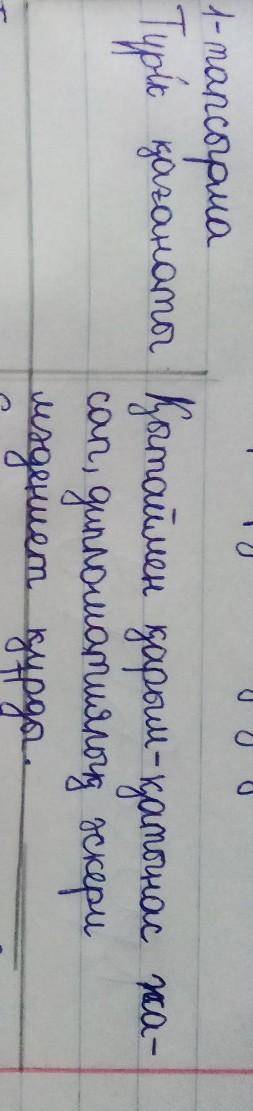 1-тапсырма
Түрік қағанаты
Қытаймен қарым-қатынас жа-
сап, дипломатиялық әскери
мәдениет құрды.